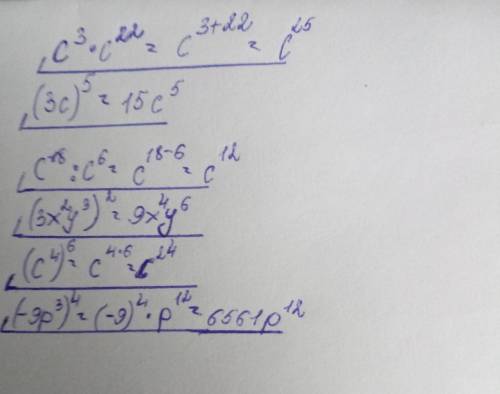 c³·c²²=c³⁺²²=c²⁵
(3c)⁵=15c⁵
c¹⁸:c⁶=c¹⁸⁻⁶=c¹²
(3x²y³)²=9x⁴y⁶
(c⁴)⁶=c⁴·⁶=c²⁴
(-9p³)⁴=(-9)⁴·p¹²=6561p¹²